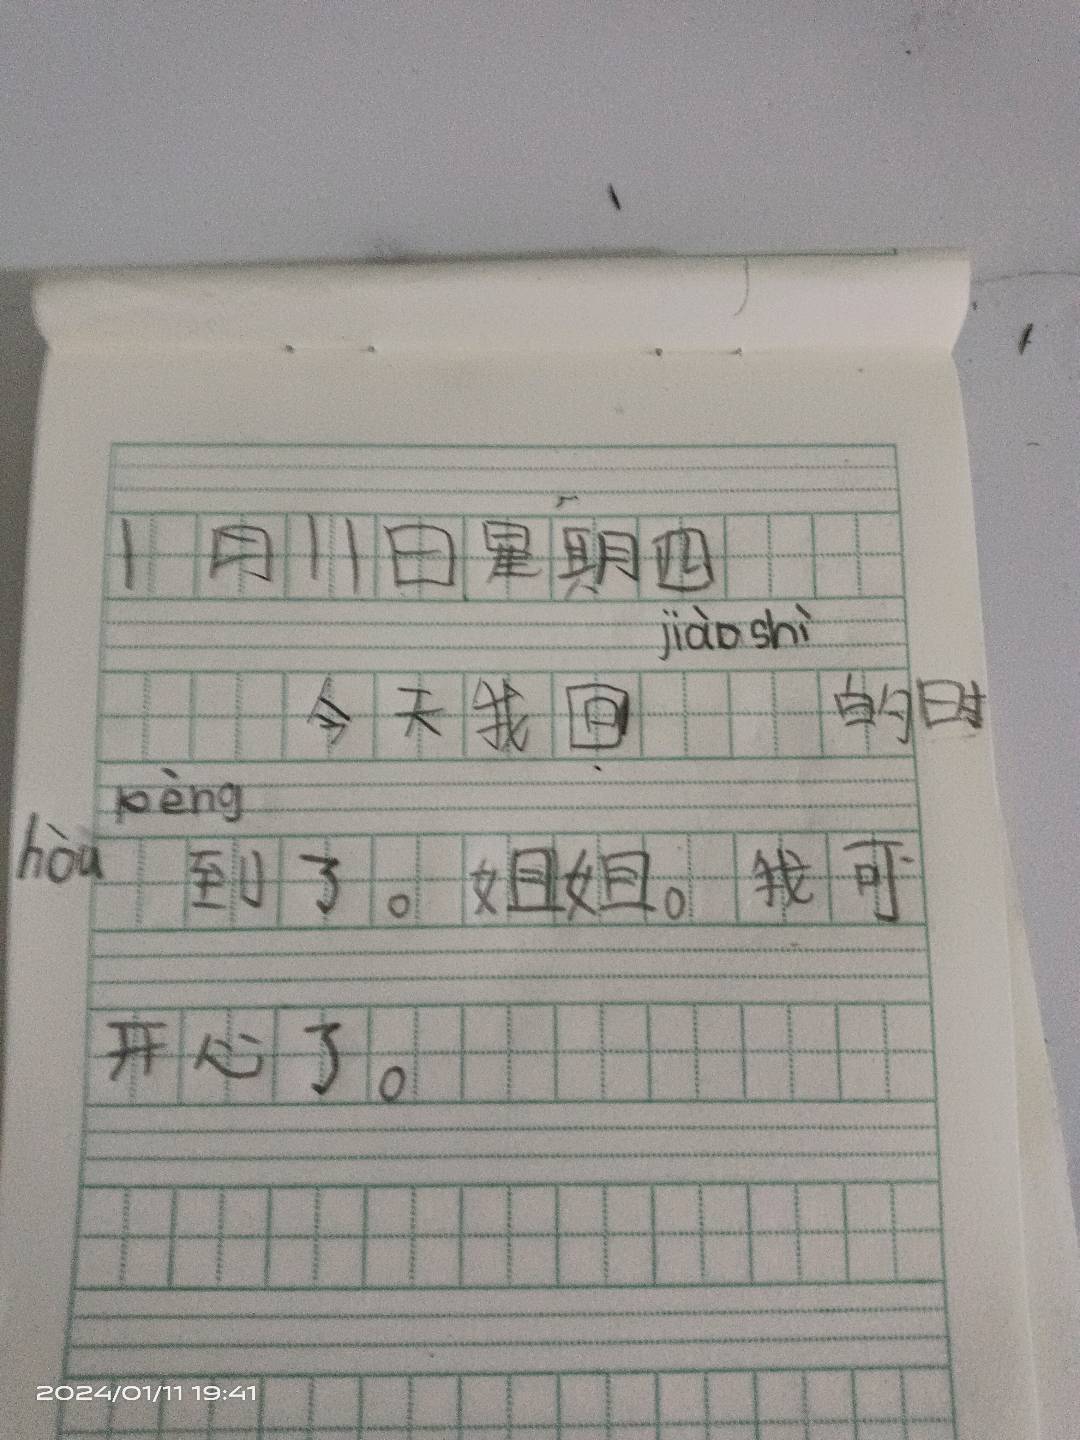 1月11日星期四
jiào shì
今天我回 的时
pèng
hòu 到了。姐姐。我可
开心了。
2024/01/11 19:41